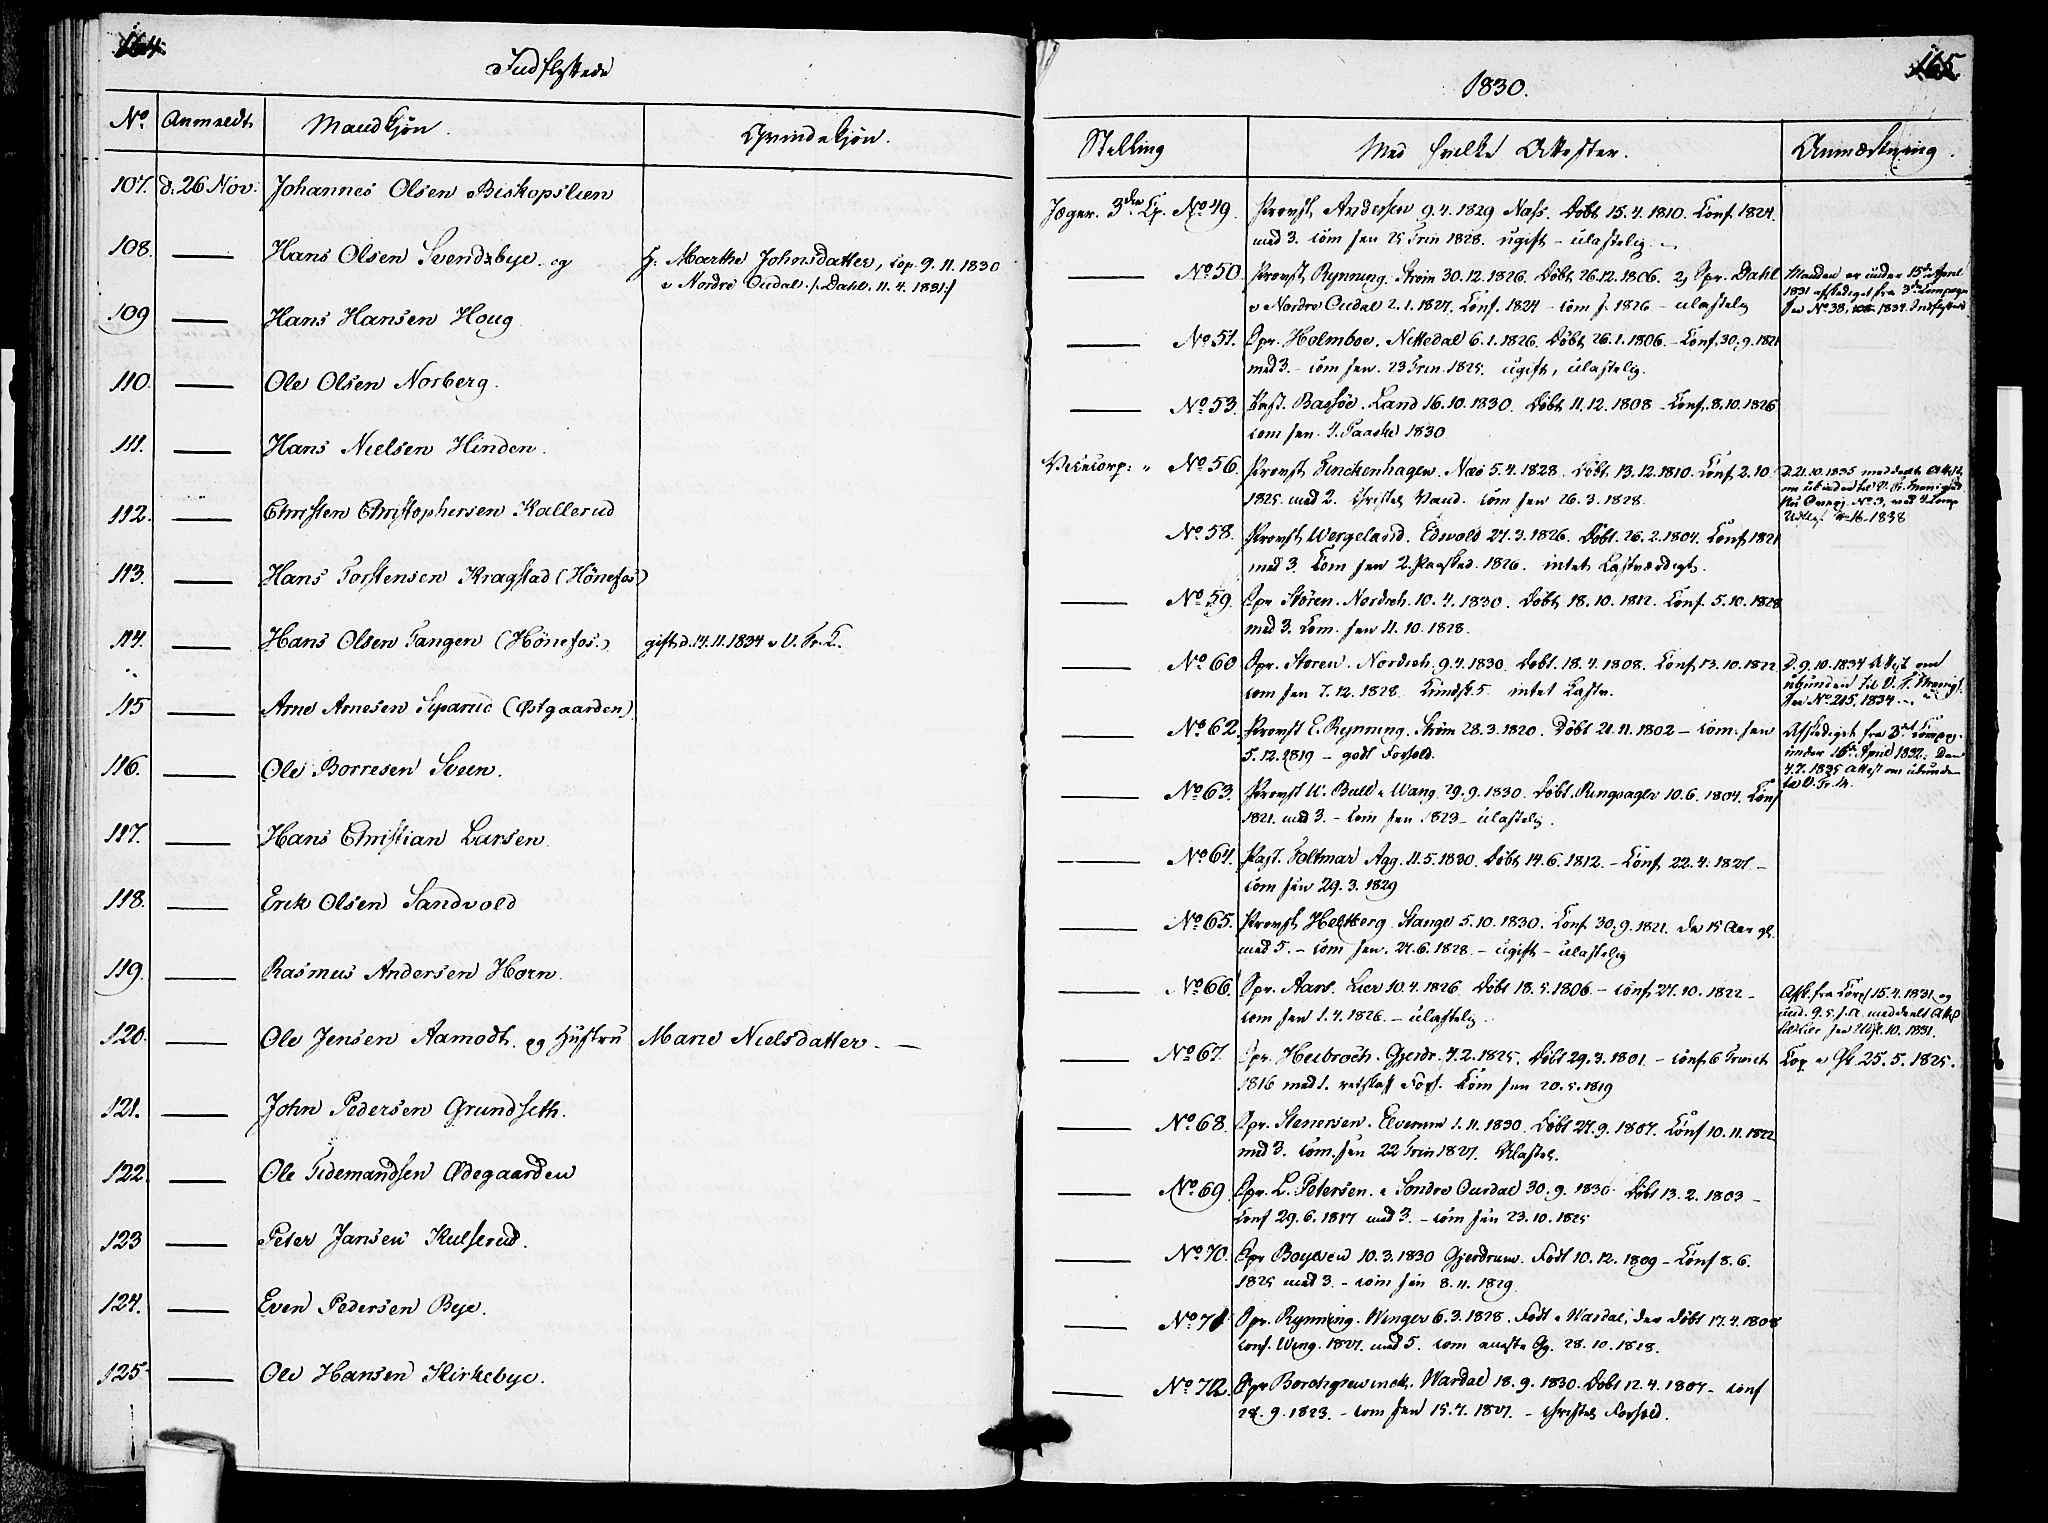 164.
Indflyttede
No. Anmeldt Mandkjøn. Qvindekjøn.
107. d. 26 Nov: Johannes Olsen Biskopslien
108. Hans Olsen Svendsbye og H. Marthe Johnsdatter, cop. 9. 11. 1830
i Nordre Oudal /: Dahl. 11. 4. 1831 :/
109 Hans Hansen Houg
110. Ole Olsen Norberg.
111. Hans Nielsen Hinden.
112. Christen Christophersen Kallerud
113. Hans Torstensen Kragstad (Hönefos)
114. Hans Olsen Tangen (Hönefos.) gift d. 14. 11. 1834 v. V. Fr. K.
115 Arne Arnesen (Østgaarden)
116. Ole Borresen Sveen.
117. Hans Christian Larsen
118. Erik Olsen Sandvold
119. Rasmus Andersen Horn.
120. Ole Jensen Aamodt. og Hustru Marie Nielsdatter.
121. John Pedersen Grundseth.
122. Ole Tidemandsen Ødegaarden
123 Peter Jansen Kulserud.
124. Even Pedersen Bye.
125 Ole Hansen Kirkebye.
165.
1830.
Stilling Med hvilke Attester. Anmærkning.
Jæger. 3die Cp. No 49. Provst Andersen 9. 4. 1829 Næss. Döbt 15. 4. 1810. Conf. 1824.
med 3. com sen 25 Trin 1828. ugift - ulastelig.
No 50. Provst Rynning. Ström 30. 12. 1826. Döbt 26. 12. 1806. 2) Spr. Dahl
i Nordre Oudal 2. 1. 1827. Conf. 1824 - com s. 1826 - ulastelig
Manden er under 15de April
1831 afskediget fra 3die Compagn
No 38. 1834 Indflyttede
No 51. Spr. Holmboe. Nittedal 6. 1. 1826. Döbt 26. 1. 1806. - Conf. 30. 9. 1821
med 3. - com sen. 23 Trin. 1825. ugift, ulastelig.
No 53. Past. Bassöe. Land 16. 10. 1830. Döbt 11. 12. 1808 - Conf. 8. 10. 1826
com sen. 4. Paaske 1830
No 56. Provst Finckenhagen. Næs 5. 4. 1828. Döbt 13. 12. 1810. Conf. 2. 10.
1825 med 2. christel. Vand. com sen 26. 3. 1828.
D. 21. 10. 1835 meddeelt Attest
om ubunden til V. F. Menighed
No 3, ved 4. Comp
Udflyt. No 16 - 1838
No 58. Provst Wergeland. Edwold 27. 3. 1826. Döbt. 26. 2. 1804. Conf. 1821
med 3. Com sen 2. Paasked. 1826. intet Lastværdigt.
No 59. Spr Stören. Nordreh. 10. 4. 1830. Döbt 18. 10. 1812. Conf. 5. 10. 1828
med 3. Com. sen 11. 10. 1828.
No 60. Spr. Stören. Nordreh. 9. 4. 1830. Döbt. 18. 4. 1808. Conf. 13. 10. 1822
com sen 7. 12. 1828. Kundsk. 5. intet Lastv.
D. 9. 10. 1834 Attest om
ubunden til V. F. Menigh.
No 215, 1834.
No 62. Provst E. Rynning. Ström 28. 3. 1820. Döbt 21. 11. 1802 - com. sen
5. 12. 1819 - godt Forhold.
Afskediget fra 3die Compag.
under 16de April 1832. Den
4. 7. 1835 Attest om ubunden
til V. Fr. M.
No 63. Provst W. Bull i Wang. 29. 9. 1830. Döbt. Ringsager 10. 6. 1804. Conf
1821. med 3. - com sen 1829 - ulastelig.
No 64. Past. Foltmar Agg. 11. 5. 1830. Döbt 14. 6. 1812. - Conf. 22. 4. 1827 -
com sen 29. 3. 1829
No 65. Provst Heltberg Stange 5. 10. 1830. Conf. 30. 9. 1821. da 15 Aar gl.
med 5. - com sen. 27. 6. 1828. - ugift - ulastelig
No 66. Spr. Aars. Lier 10. 4. 1826. Döbt 18. 5. 1806 - conf. 27. 10. 1822 -
com sen 1. 4. 1826. - ulastelig.
Afsk. fra Corps 15. 4. 1831 og
und. 9. 5. s. A. meddeelt Attest
til Lier sen Udfl. 10. 1831.
No 67. Spr. Heibroch. Gjerdr. 4. 2. 1825. Döbt 29. 3. 1801. - conf. 6 Trinit
1816 med 1. retskaf. Forh. Com sen 20. 5. 1819
Cop. i Gj. 25. 5. 1825.
No 68. Spr. Stenersen. Elverum 1. 11. 1830. Döbt 27. 9. 1807. Conf 10. 11. 1822
med 3. com. sen 22 Trin 1827. Ulastel.
No 69. Spr. L. Petersen. i Söndre Ourdal 30. 9. 1830 Döbt 13. 2. 1803 -
Conf 29. 6. 1817 med 3. - com sen 23. 10. 1825
No 70. Spr Boyesen 10. 3. 1830 Gjerdrum. Födt 10. 12. 1809 - Conf 8. 6.
1825 med 3. - com sen 8. 11. 1829.
No 71. Spr. Rynning. Winger 6. 3. 1828. Födt i Wardal, der döbt 17. 4. 1808
conf. Wing. 1827. med 5. com anden Gg. 28. 10. 1828.
No 72. Spr Borchgrevinck. Wardal 18. 9. 1830. Döbt 12. 4. 1807 - conf
28. 9. 1823. - com sen 15. 4. 1827. - christel. Forhold.